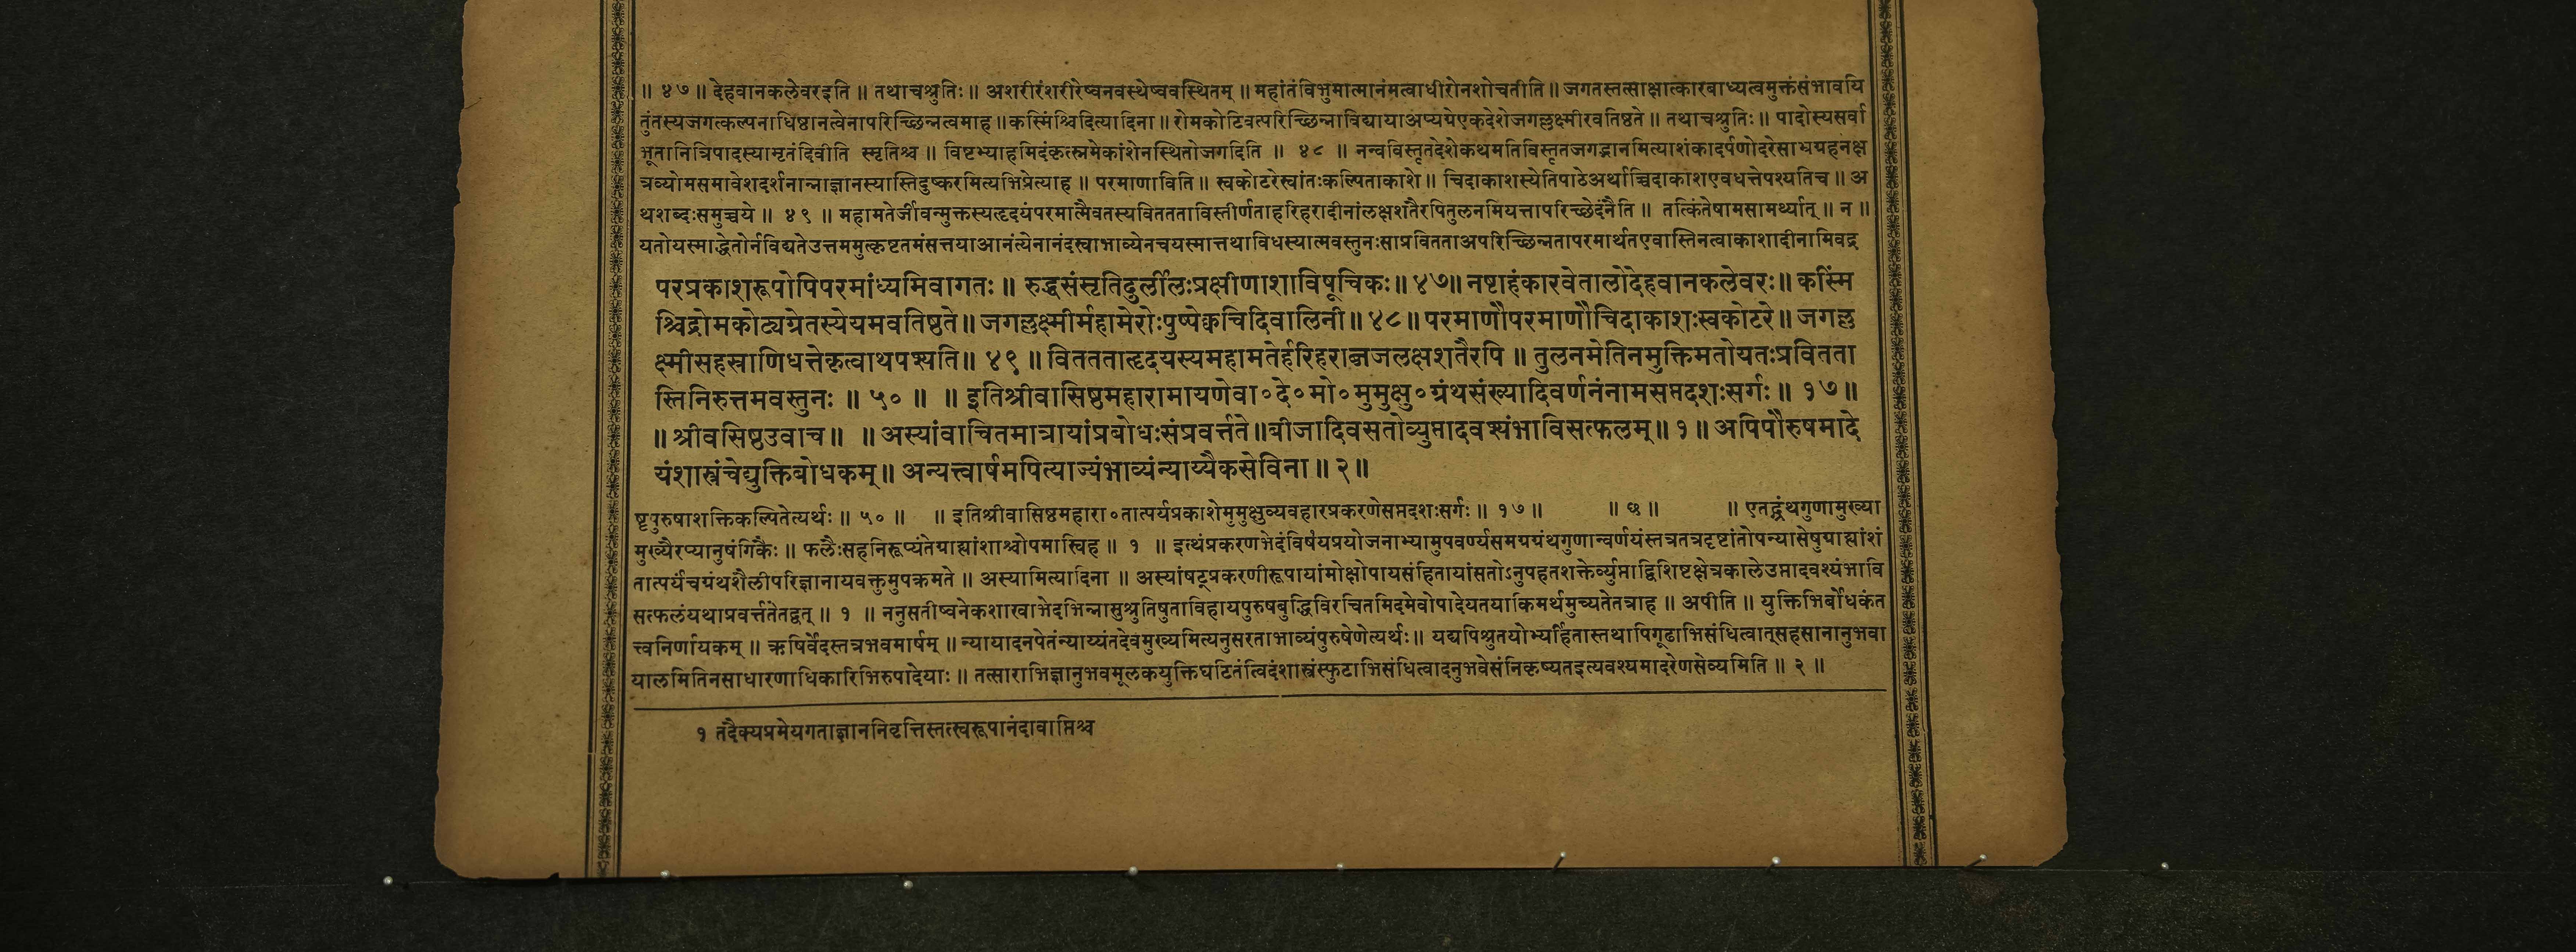 ॥ ४७ ॥ देहवानकलेवरइति ॥ तथाचश्रुतिः ॥ अशरीरंशरीरेष्वनवस्थेष्ववस्थितम् ॥ महांतंविभुमात्मानंमत्वाधीरोनशोचतीति ॥ जगतस्तत्साक्षात्कारबाध्यत्वमुक्तंसंभावयि
तुंतस्यजगत्कल्पनाधिष्ठानत्वेनापरिच्छिन्नत्वमाह ॥ कस्मिंश्चिदित्यादिना ॥ रोमकोटिवत्परिच्छिन्नाविद्यायाअप्यग्रेएकदेशेजगल्लक्ष्मीरवतिष्ठते ॥ तथाचश्रुतिः ॥ पादोस्यसर्वा
भूतानित्रिपादस्यामृतंदिवीति स्मृतिश्च ॥ विष्टभ्याहमिदंकृत्स्नमेकांशेनस्थितोजगदिति ॥ ४८ ॥ नन्वविस्तृतदेशेकथमतिविस्तृतजगद्भानमित्याशंकादर्पणोदरेसाभ्रग्रहनक्ष
त्रव्योमसमावेशदर्शनान्नाज्ञानस्यास्तिदुष्करमित्यभिप्रेत्याह ॥ परमाणाविति ॥ स्वकोटरेस्वांतःकल्पिताकाशे ॥ चिदाकाशस्येतिपाठेअर्थाच्चिदाकाशएवधत्तेपश्यतिच ॥ अ
थशब्दःसमुच्चये ॥ ४९ ॥ महामतेर्जीवन्मुक्तस्यहृदयंपरमात्मैवतस्यविततताविस्तीर्णताहरिहरादीनांलक्षशतैरपितुलनमियत्तापरिच्छेदंनैति ॥ तत्किंतेषामसामर्थ्यात् ॥ न ॥
यतोयस्माद्धेतोर्नविद्यतेउत्तममुत्कृष्टतमंसत्तयाआनंत्येनानंदस्वाभाव्येनचयस्मात्तथाविधस्यात्मवस्तुनःसाप्रविततताअपरिच्छिन्नतापरमार्थतएवास्तिनत्वाकाशादीनामिवद्र
परप्रकाशरूपोपिपरमांध्यमिवागतः ॥ रुद्धसंसृतिदुर्लीलःप्रक्षीणाशाविषूचिकः ॥ ४७ ॥ नष्टाहंकारवेतालोदेहवानकलेवरः ॥ कस्मिं
श्चिद्रोमकोट्यग्रेतस्येयमवतिष्ठते ॥ जगल्लक्ष्मीर्महामेरोःपुष्पेक्वचिदिवालिनी ॥ ४८ ॥ परमाणौपरमाणौचिदाकाशःस्वकोटरे ॥ जगल्ल
क्ष्मीसहस्राणिधत्तेकृत्वाथपश्यति ॥ ४९ ॥ विततताहृदयस्यमहामतेर्हरिहराब्जजलक्षशतैरपि ॥ तुलनमेतिनमुक्तिमतोयतःप्रवितता
स्तिनिरुत्तमवस्तुनः ॥ ५० ॥ ॥ इतिश्रीवासिष्ठमहारामायणेवा०दे०मो०मुमुक्षु०ग्रंथसंख्यादिवर्णनंनामसप्तदशःसर्गः ॥ १७ ॥
॥ श्रीवसिष्ठउवाच ॥ ॥ अस्यांवाचितमात्रायांप्रबोधःसंप्रवर्त्तते ॥ बीजादिवसतोव्युप्तादवश्यंभाविसत्फलम् ॥ १ ॥ अपिपौरुषमादे
यंशास्त्रंचेद्युक्तिबोधकम् ॥ अन्यत्त्वार्षमपित्याज्यंभाव्यंन्याय्यैकसेविना ॥ २ ॥
ष्टृपुरुषाशक्तिकल्पितेत्यर्थः ॥ ५० ॥ ॥ इतिश्रीवासिष्ठमहारा०तात्पर्यप्रकाशेमुमुक्षुव्यवहारप्रकरणेसप्तदशःसर्गः ॥ १७ ॥ ॥ छ ॥ ॥ एतद्ग्रंथगुणामुख्या
मुख्यैरप्यानुषंगिकैः ॥ फलैःसहनिरूप्यंतेग्राह्यांशाश्चोपमास्विह ॥ १ ॥ इत्थंप्रकरणभेदंविषयप्रयोजनाभ्यामुपवर्ण्यसमग्रग्रंथगुणान्वर्णयंस्तत्रतत्रदृष्टांतोपन्यासेषुग्राह्यांशं
तात्पर्यंचग्रंथशैलीपरिज्ञानायवक्तुमुपक्रमते ॥ अस्यामित्यादिना ॥ अस्यांषट्प्रकरणीरूपायांमोक्षोपायसंहितायांसतोऽनुपहतशक्तेर्व्युप्ताद्विशिष्टक्षेत्रकालेउप्तादवश्यंभावि
सत्फलंयथाप्रवर्त्ततेतद्वत् ॥ १ ॥ ननुसतीष्वनेकशाखाभेदभिन्नासुश्रुतिषुताविहायपुरुषबुद्धिविरचितमिदमेवोपादेयतयाकिमर्थमुच्यतेतत्राह ॥ अपीति ॥ युक्तिभिर्बोधकंत
त्त्वनिर्णायकम् ॥ ऋषिर्वेदस्तत्रभवमार्षम् ॥ न्यायादनपेतंन्याय्यंतदेवमुख्यमित्यनुसरताभाव्यंपुरुषेणेत्यर्थः ॥ यद्यपिश्रुतयोभ्यर्हितास्तथापिगूढाभिसंधित्वात्सहसानानुभवा
यालमितिनसाधारणाधिकारिभिरुपादेयाः ॥ तत्साराभिज्ञानुभवमूलकयुक्तिघटितंत्विदंशास्त्रंस्फुटाभिसंधित्वादनुभवेसंनिकृष्यतइत्यवश्यमादरेणसेव्यमिति ॥ २ ॥
१ तदैक्यप्रमेयगताज्ञाननिवृत्तिस्तत्स्वरूपानंदावाप्तिश्च